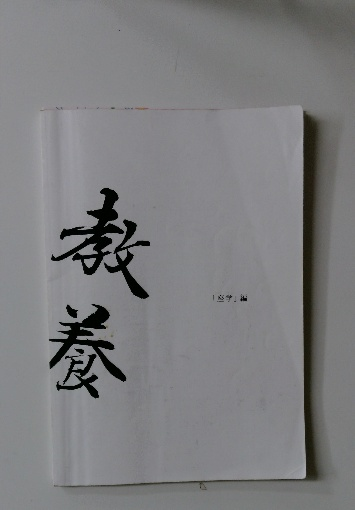 教
養
「座学」編